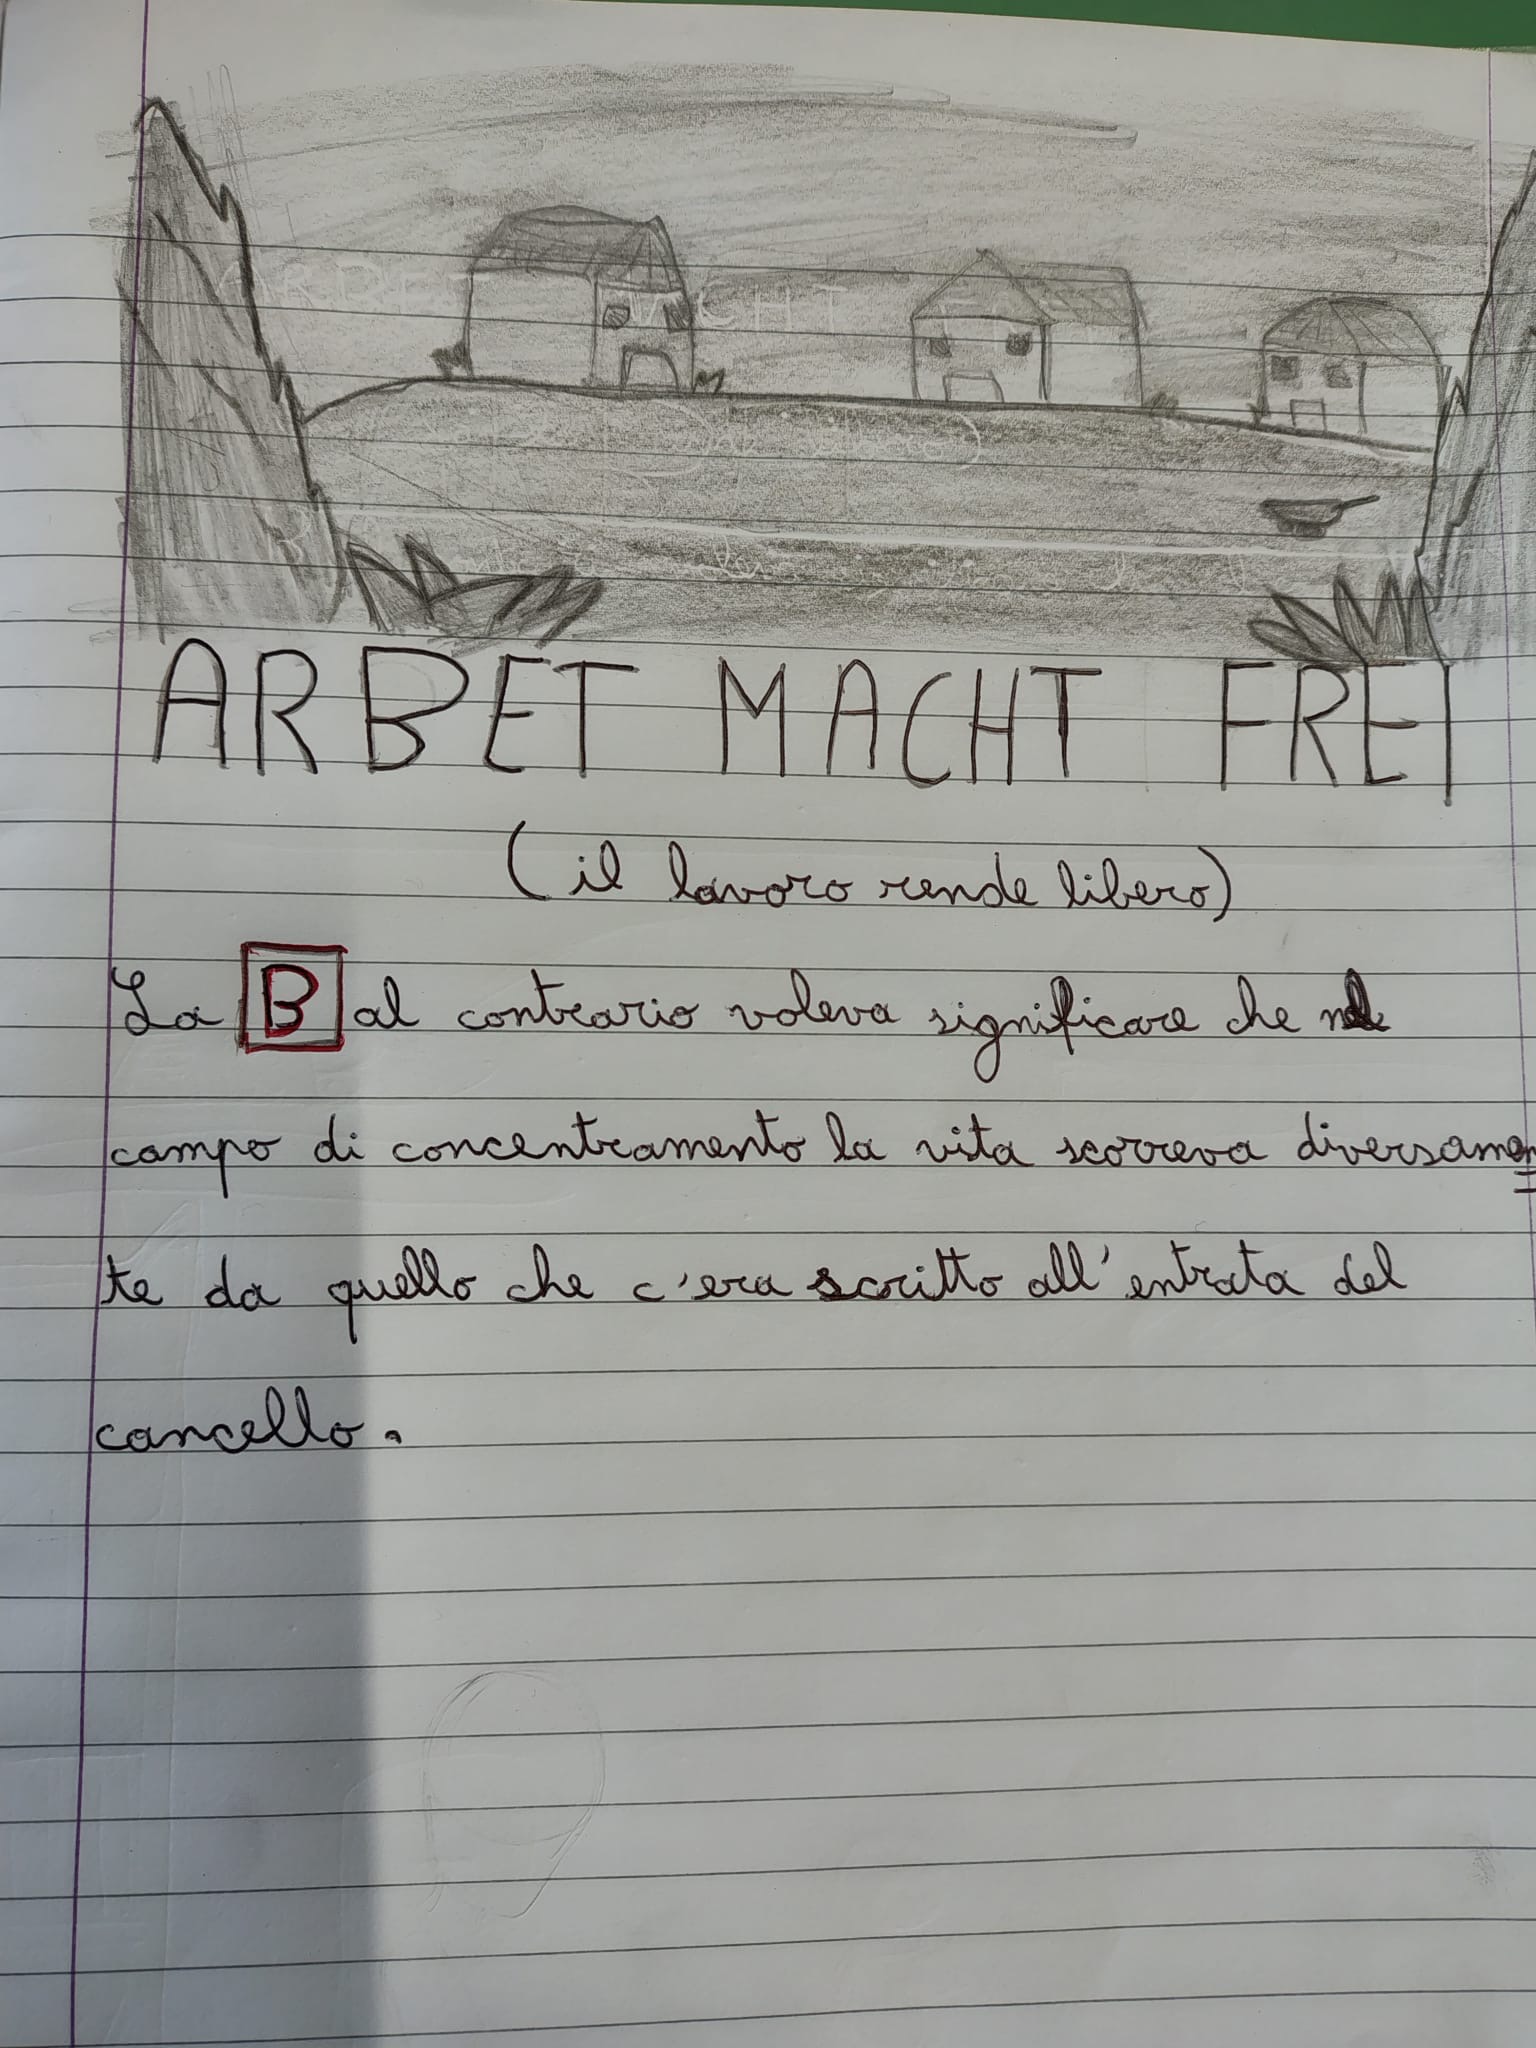 ARBET MACHT FREI
(il lavoro rende libero)
La B al contrario voleva significare che nel
campo di concentramento la vita scorreva diversamen
te da quello che c'era scritto all'entrata del
cancello.